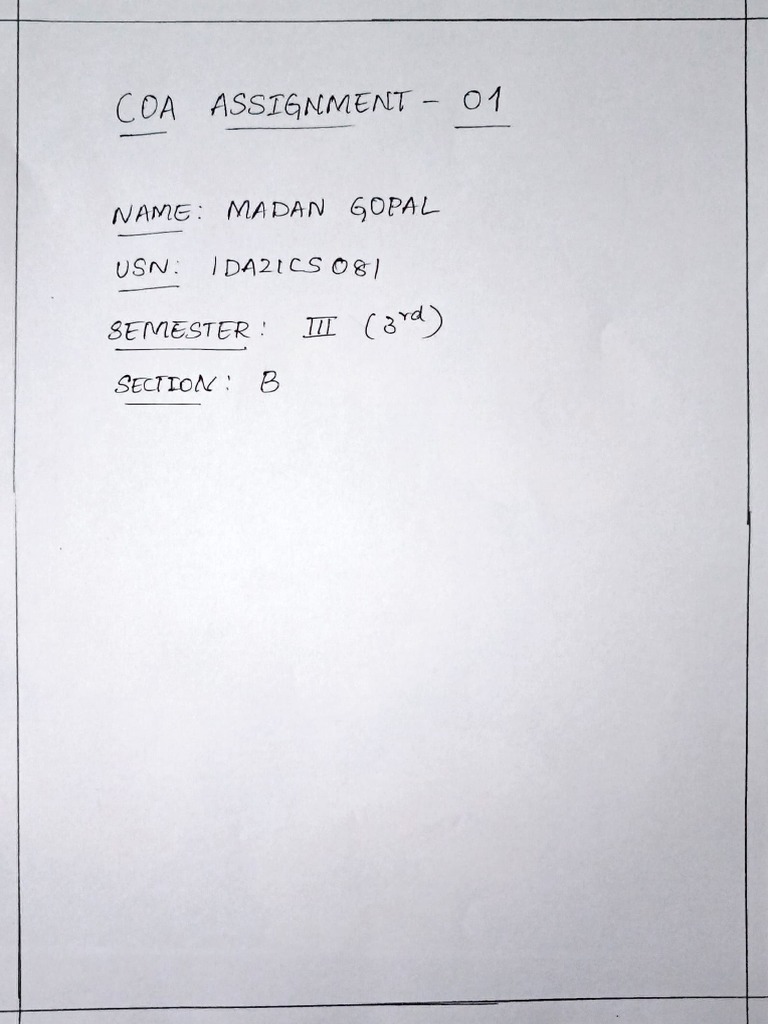 COA ASSIGNMENT - 01
NAME: MADAN GOPAL
USN: 1DA21CS081
SEMESTER: III (3rd)
SECTION: B